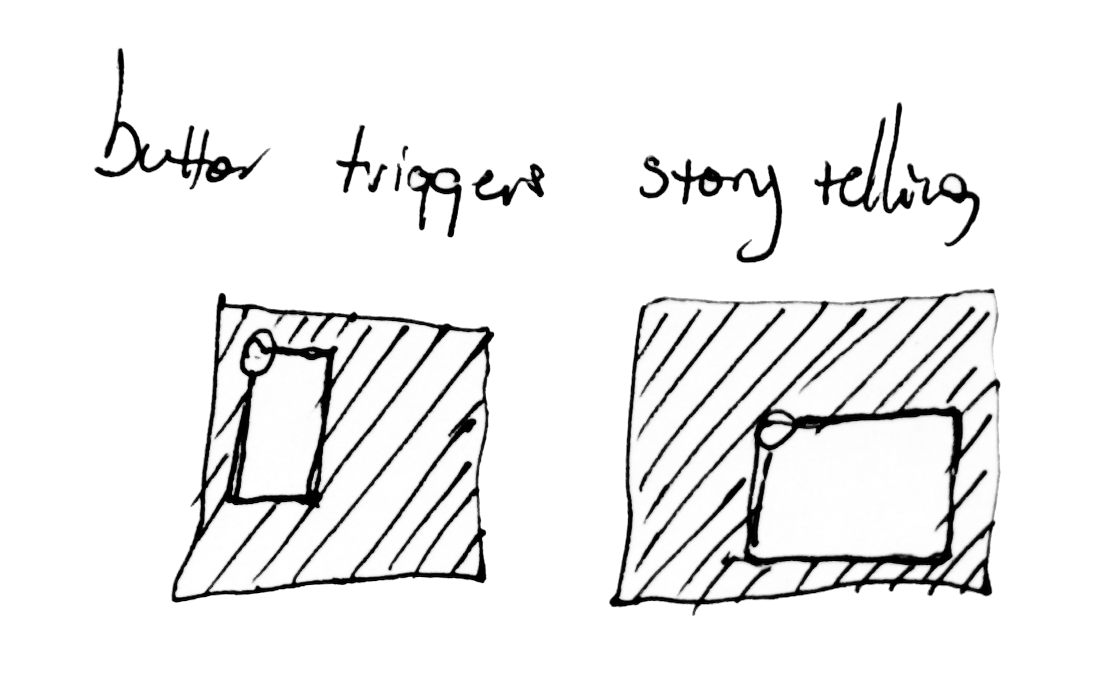 button triggers story telling